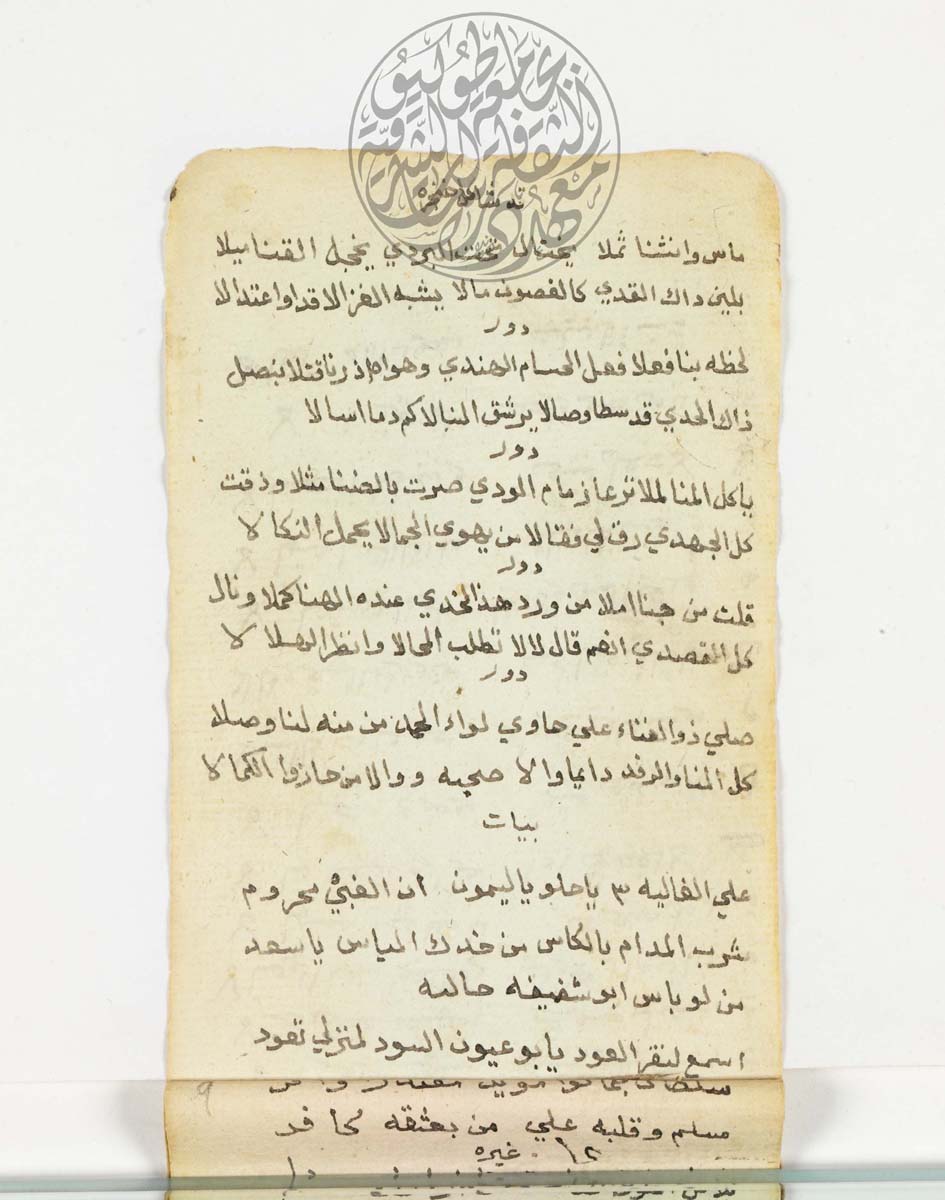 معهد دراسات الثقافة الشرقية
جامعة طوكيو
ماس وانثنا ثملا يختال تحت البردي يخجل القنا ميلا
بلين داك القدي كالغصون مالا يشبه الغزالا قدا واعتدالا
دور
لحظه بنا فعلا فعل الحسام الهندي وهواه اذ رنا قتلا بنصل
ذاك الحدي قد سطا وصالا يرشق النبالا كم دما اسالا
دور
ياكل المنا لملا ترعا زمام الودي صرت بالضنا مثلا وذقت
كل الجهدي رق لي فقالا من يهوي الجمالا يحمل النكالا
دور
قلت من جنا املا من ورد هذا الخدي عنده الهنا كملا ونال
كل المقصدي انعم قال لالا تطلب المحالا وانظر الهلالا
دور
صلي ذو الغناء علي حاوي لواء الحمد من منه لنا وصلا
كل المنا والرفد دايما والا صحبه ووالا من حازوا الكمالا
بيات
علي الغاليه ٣ ياحلو ياليمون ان الغبي محروم
شرب المدام بالكاس من خدك المياس ياسعد
من لو باس ابو شفيفه حاليه
اسمع لنقر العود يابو عيون السود لمنزلي تعود
مسلم وقلبه علي من يعشقه كافر
١٢ غيره